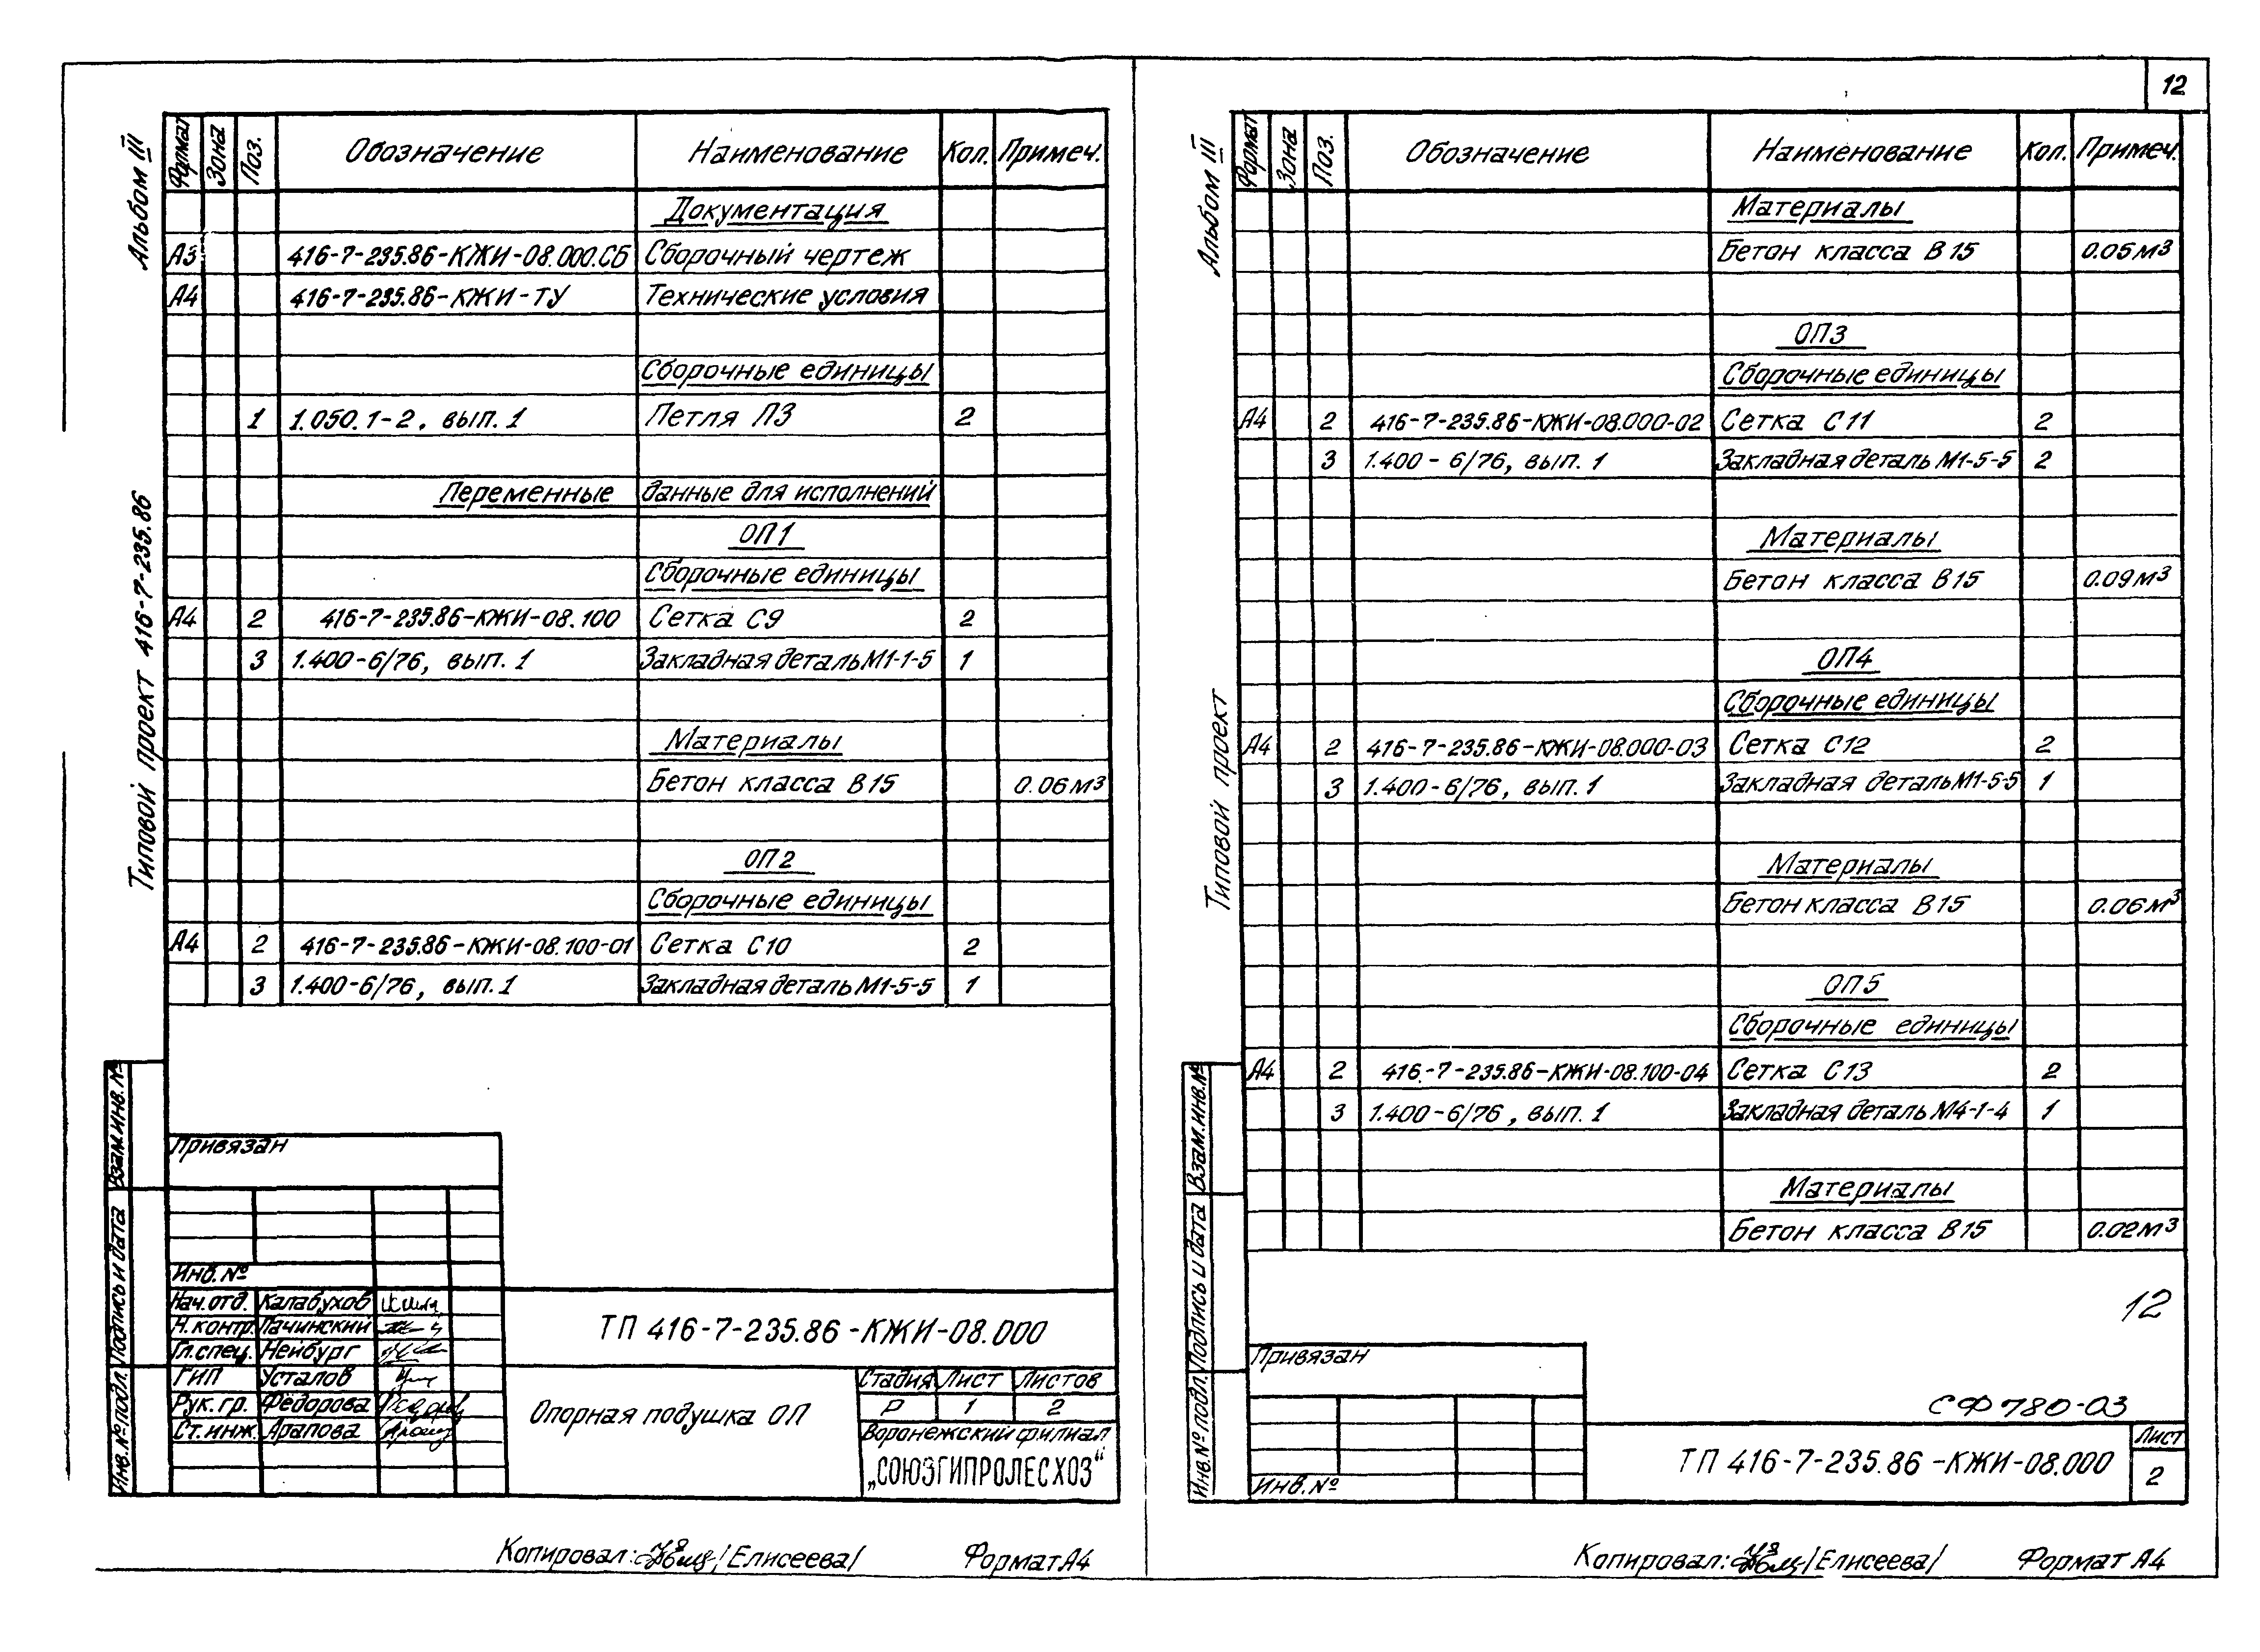 12
Альбом III
Типовой проект 416-7-235.86
Формат Зона Поз. Обозначение Наименование Кол. Примеч.
Документация
А3 416-7-235.86-КЖИ-08.000.СБ Сборочный чертеж
А4 416-7-235.86-КЖИ-ТУ Технические условия
Сборочные единицы
1 1.050.1-2. вып. 1 Петля П3 2
Переменные данные для исполнений
ОП1
Сборочные единицы
А4 2 416-7-235.86-КЖИ-08.100 Сетка С9 2
3 1.400-6/76, вып. 1 Закладная деталь М1-1-5 1
Материалы
Бетон класса В15 0.06м³
ОП2
Сборочные единицы
А4 2 416-7-235.86-КЖИ-08.100-01 Сетка С10 2
3 1.400-6/76, вып. 1 Закладная деталь М1-5-5 1
Взам.инв.№
Подпись и дата
Инв.№ подл.
Привязан
Инв. №
Нач.отд. Калабухов
Н.контр. Пачинский
Гл.спец. Нейбург
ГИП Усталов
Рук.гр. Фёдорова
Ст.инж. Арапова
ТП 416-7-235.86-КЖИ-08.000
Опорная подушка ОП
Стадия Лист Листов
Р 1 2
Воронежский филиал
„СОЮЗГИПРОЛЕСХОЗ“
Копировал: /Елисеева/ Формат А4
Альбом III
Типовой проект
Формат Зона Поз. Обозначение Наименование Кол. Примеч.
Материалы
Бетон класса В15 0.05м³
ОП3
Сборочные единицы
А4 2 416-7-235.86-КЖИ-08.000-02 Сетка С11 2
3 1.400-6/76, вып. 1 Закладная деталь М1-5-5 2
Материалы
Бетон класса В15 0.09м³
ОП4
Сборочные единицы
А4 2 416-7-235.86-КЖИ-08.000-03 Сетка С12 2
3 1.400-6/76, вып. 1 Закладная деталь М1-5-5 1
Материалы
Бетон класса В15 0.06м³
ОП5
Сборочные единицы
А4 2 416-7-235.86-КЖИ-08.100-04 Сетка С13 2
3 1.400-6/76, вып. 1 Закладная деталь М4-1-4 1
Материалы
Бетон класса В15 0.02м³
12
Взам.инв.№
Подпись и дата
Инв.№ подл.
Привязан
Инв.№
СФ 780-03
ТП 416-7-235.86-КЖИ-08.000
Лист
2
Копировал: /Елисеева/ Формат А4